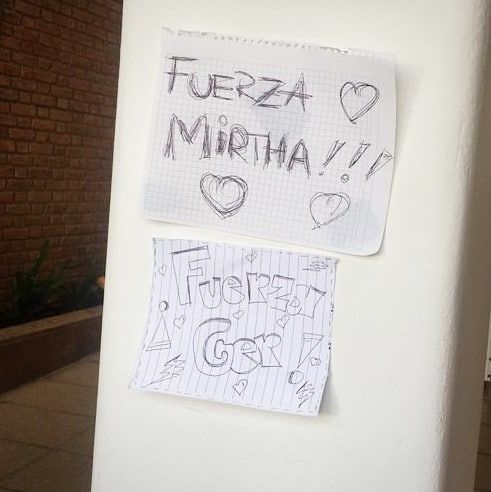 FUERZA
MIRTHA!!!
Fuerza
¡Ger!